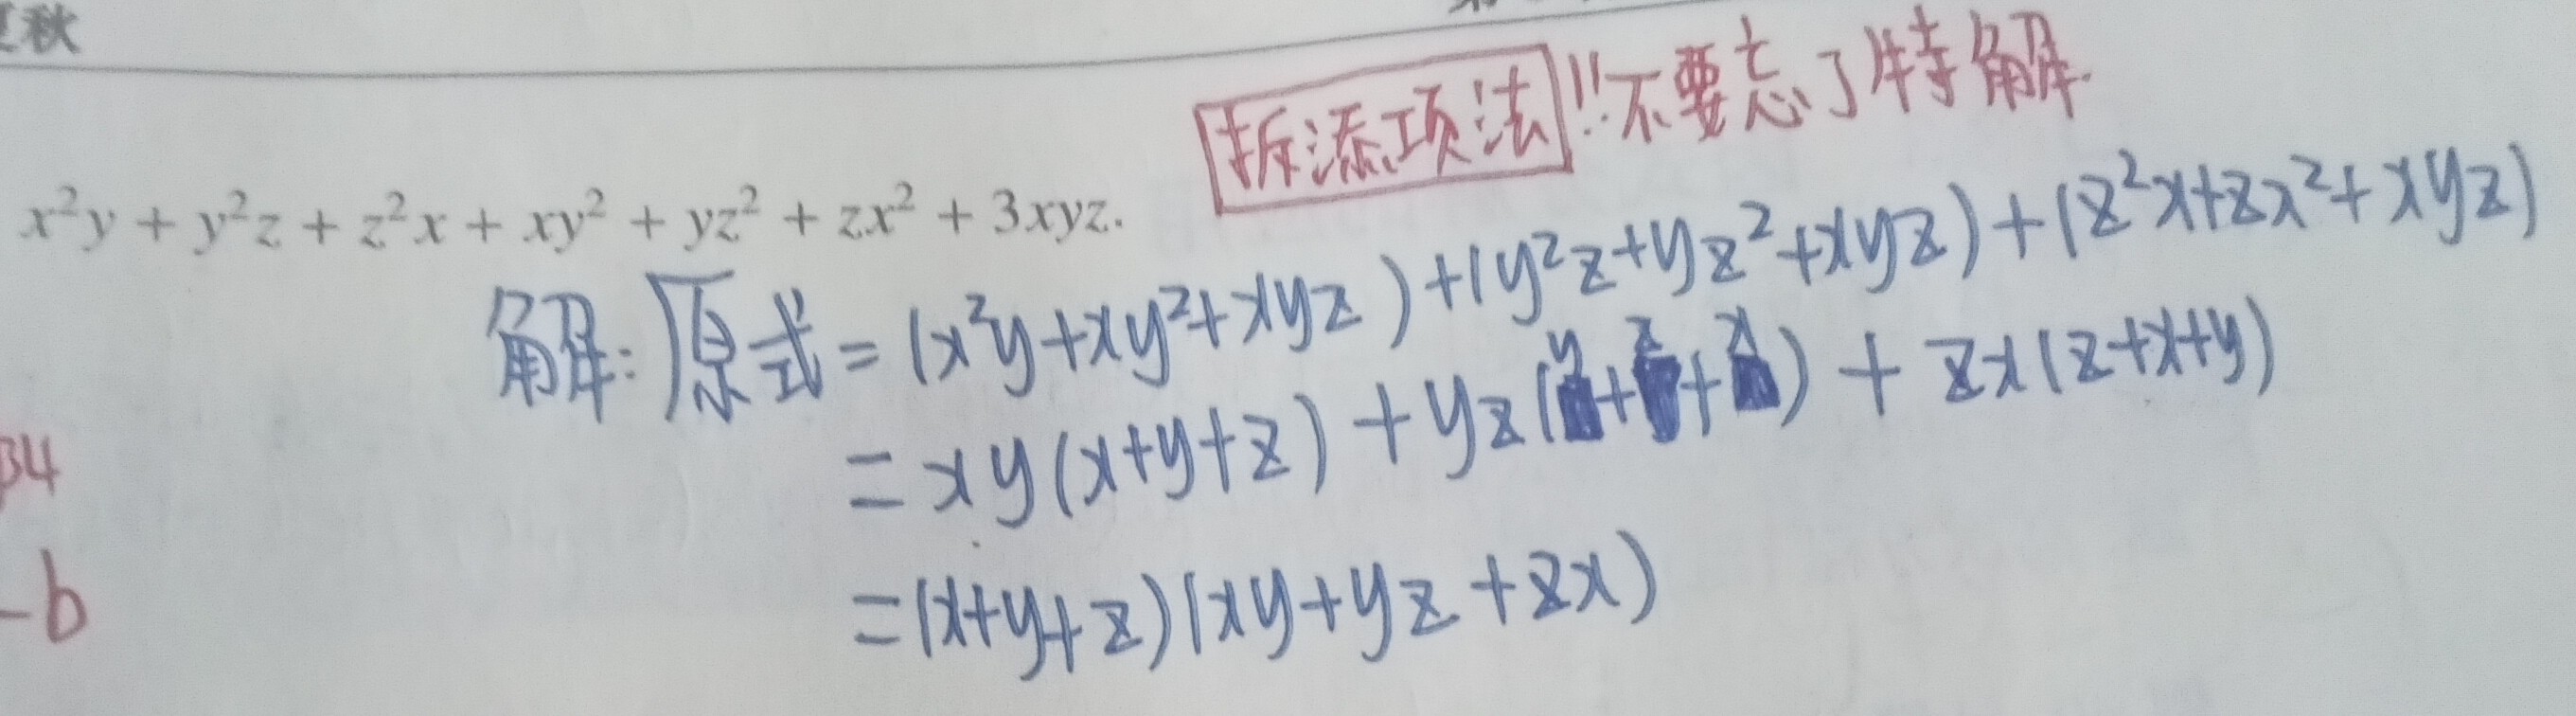 秋
拆添项法!!不要忘了特解.
x²y + y²z + z²x + xy² + yz² + zx² + 3xyz.
解:原式=(x²y+xy²+xyz)+(y²z+yz²+xyz)+(z²x+zx²+xyz)
=xy(x+y+z)+yz(y+z+x)+zx(z+x+y)
=(x+y+z)(xy+yz+zx)
34
-b